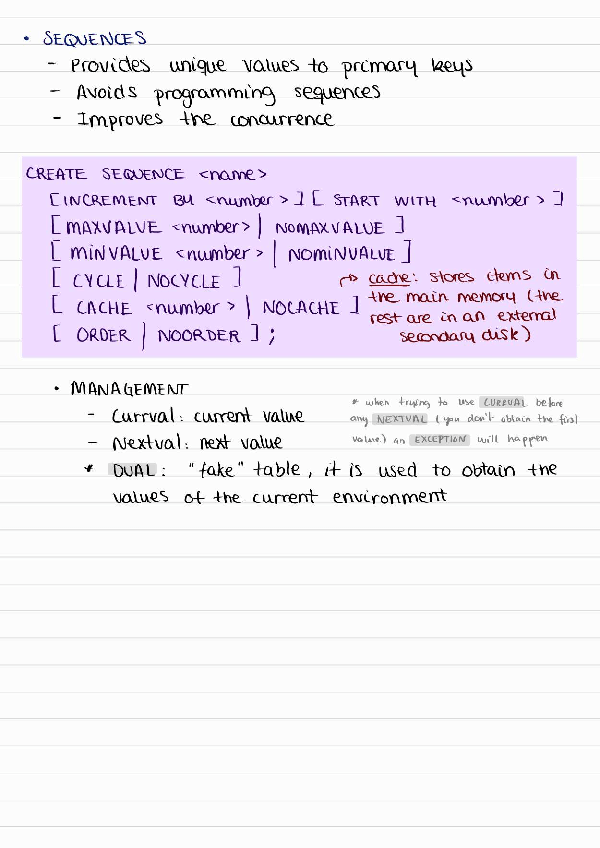 • SEQUENCES
- Provides unique values to primary keys
- Avoids programming sequences
- Improves the concurrence
CREATE SEQUENCE <name>
[INCREMENT BY <number>] [START WITH <number>]
[MAXVALUE <number> | NOMAXVALUE]
[MINVALUE <number> | NOMINVALUE]
[CYCLE | NOCYCLE]
[CACHE <number> | NOCACHE]
[ORDER | NOORDER];
↪ cache: stores items in
the main memory (the
rest are in an external
secondary disk)
• MANAGEMENT
- Currval: current value
- Nextval: next value
* when trying to use CURRVAL before
any NEXTVAL (you don't obtain the first
value) an EXCEPTION will happen
* DUAL: "fake" table, it is used to obtain the
values of the current environment